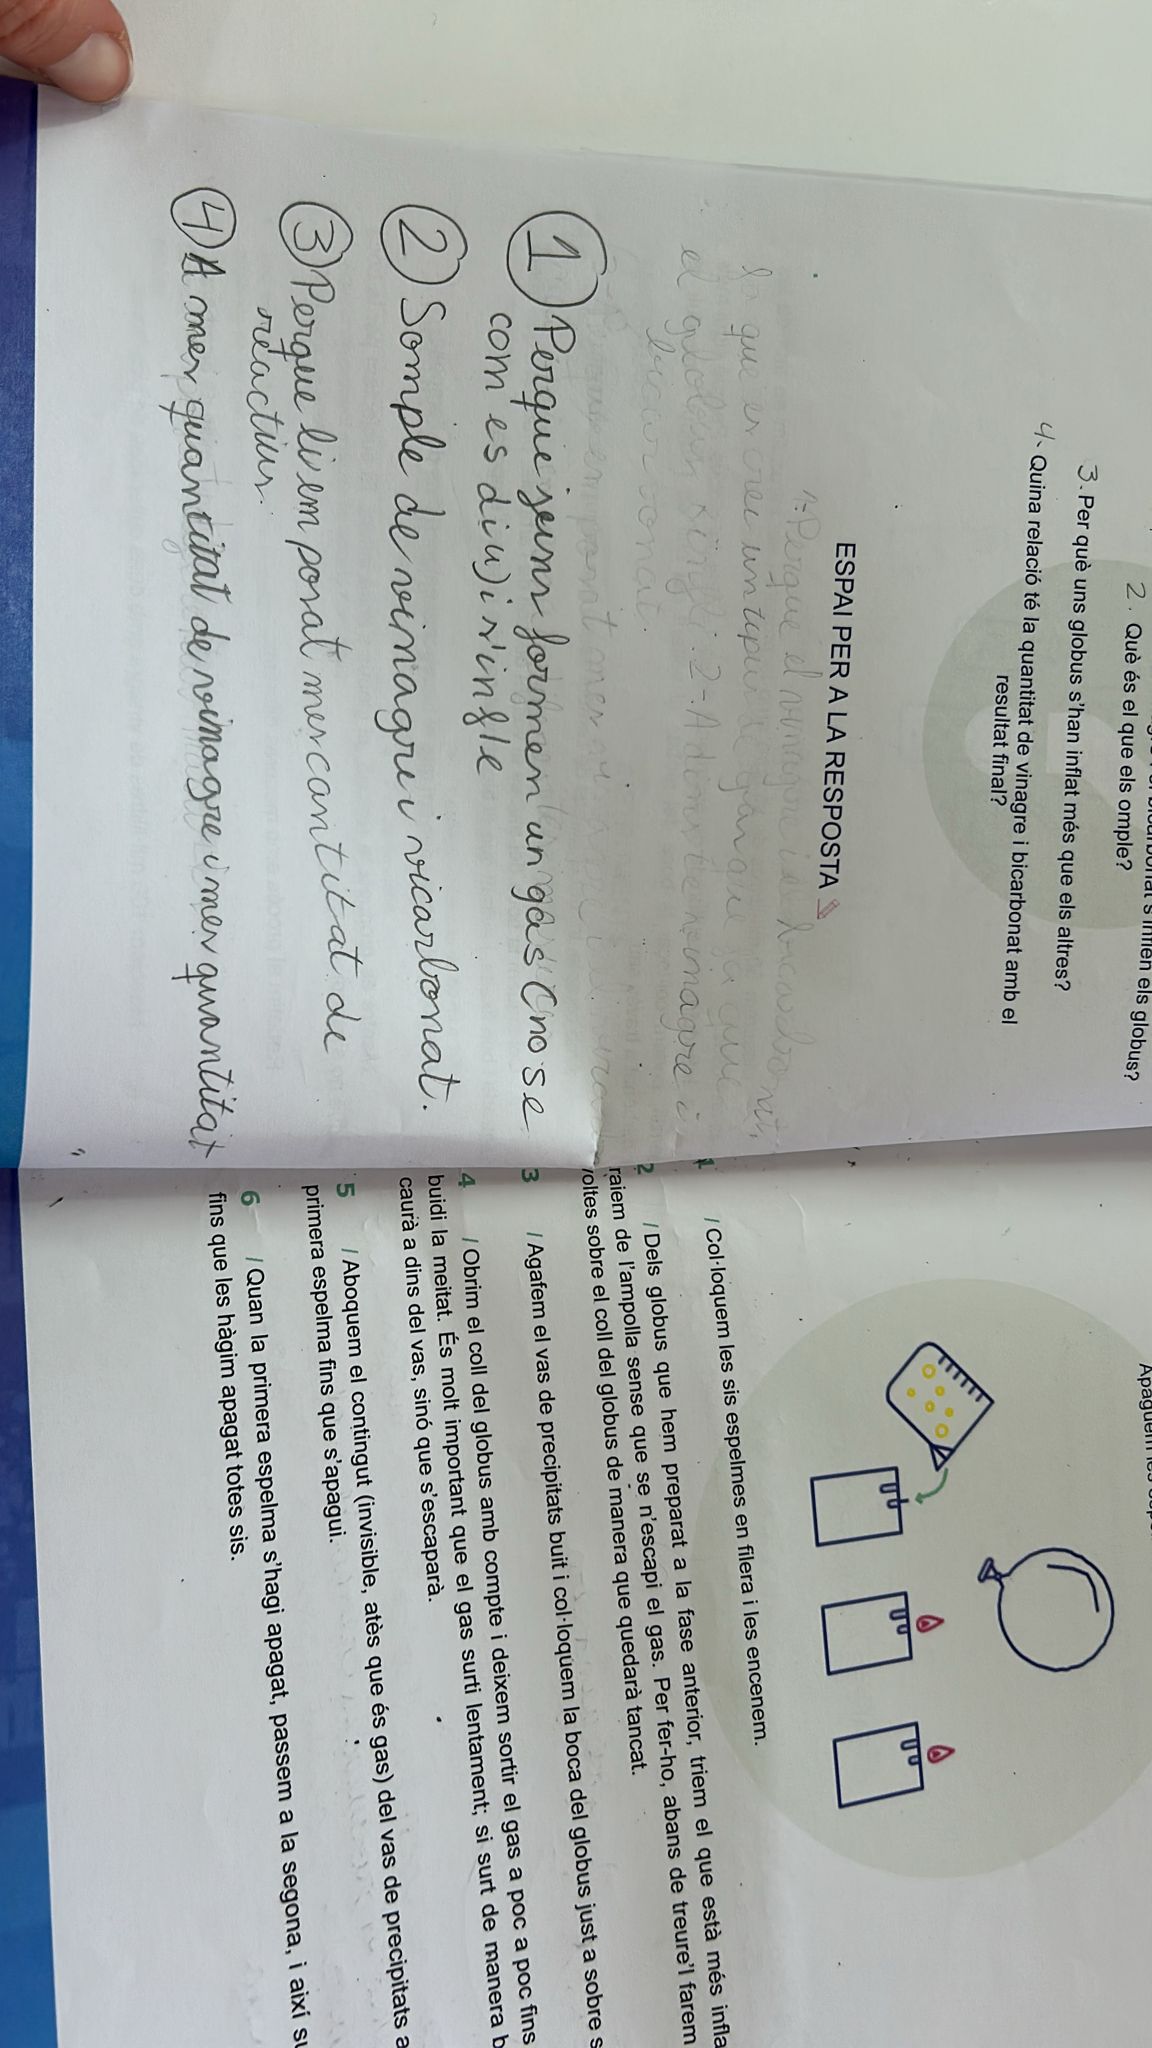 s'inflen els globus?
2. Què és el que els omple?
3. Per què uns globus s'han inflat més que els altres?
4. Quina relació té la quantitat de vinagre i bicarbonat amb el
resultat final?
ESPAI PER A LA RESPOSTA
1 Perque junr formen un gas (no se
com es diu) i s'infle
2 Somple de vinagre i vicarbonat.
3 Perque li em posat mer cantitat de
reactius.
4 A mer quantitat de vinagre i mer quantitat
1 / Col·loquem les sis espelmes en filera i les encenem.
2 / Dels globus que hem preparat a la fase anterior, triem el que està més infla
raiem de l'ampolla sense que se n'escapi el gas. Per fer-ho, abans de treure'l farem
voltes sobre el coll del globus de manera que quedarà tancat.
3 / Agafem el vas de precipitats buit i col·loquem la boca del globus just a sobre s
4 / Obrim el coll del globus amb compte i deixem sortir el gas a poc a poc fins
buidi la meitat. És molt important que el gas surti lentament; si surt de manera b
caurà a dins del vas, sinó que s'escaparà.
5 / Aboquem el contingut (invisible, atès que és gas) del vas de precipitats a
primera espelma fins que s'apagui.
6 / Quan la primera espelma s'hagi apagat, passem a la segona, i així su
fins que les hàgim apagat totes sis.